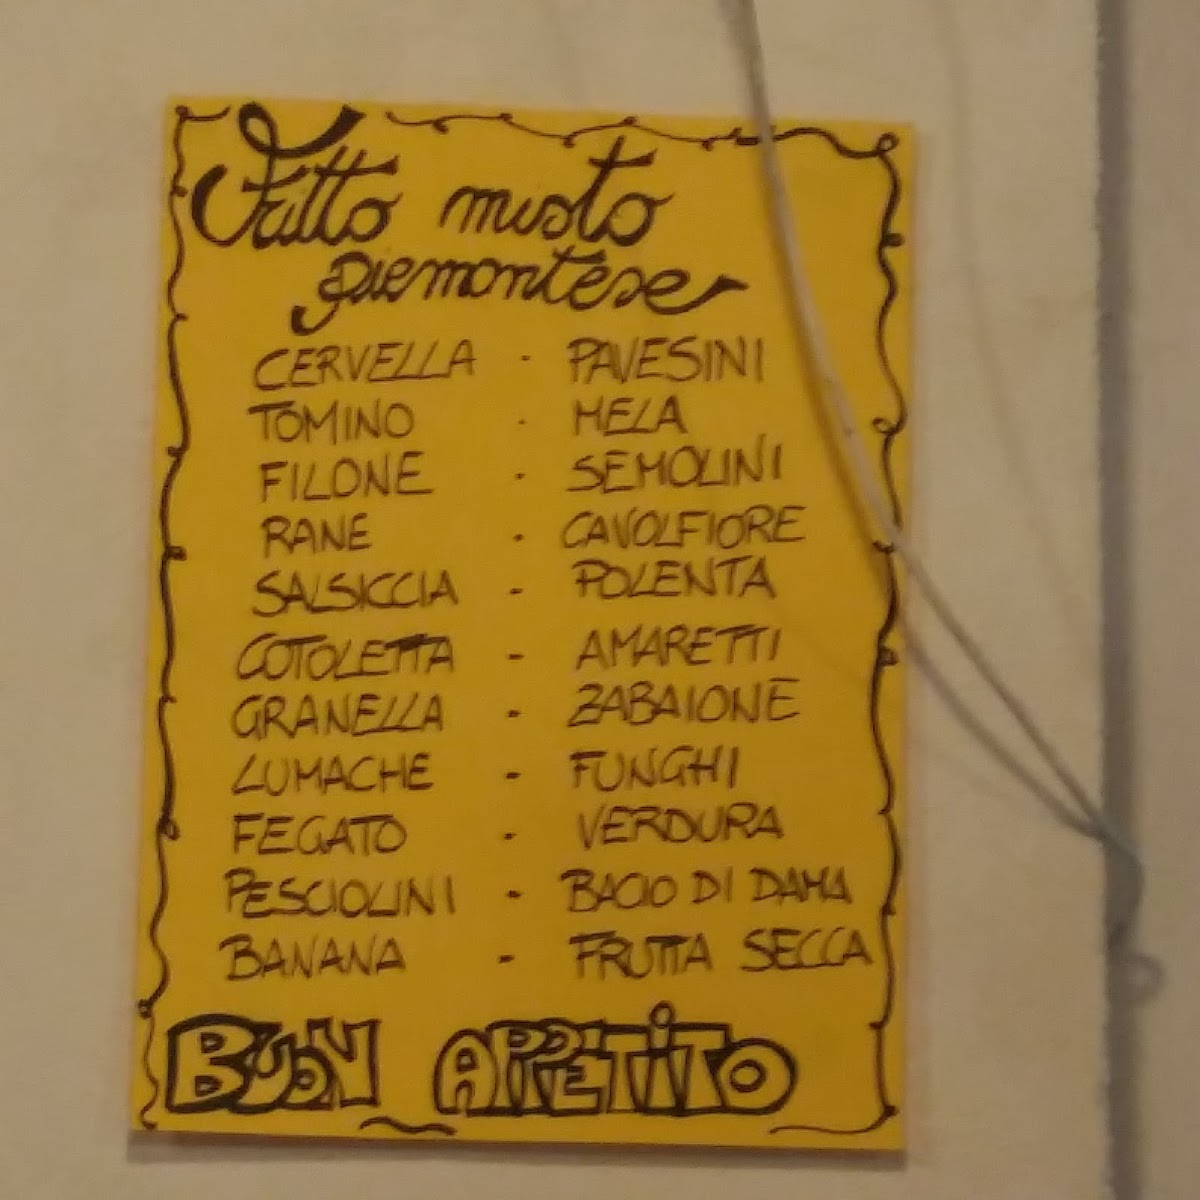 Fritto misto
piemontese
CERVELLA - PAVESINI
TOMINO - MELA
FILONE - SEMOLINI
RANE - CAVOLFIORE
SALSICCIA - POLENTA
COTOLETTA - AMARETTI
GRANELLA - ZABAIONE
LUMACHE - FUNGHI
FEGATO - VERDURA
PESCIOLINI - BACIO DI DAMA
BANANA - FRUTTA SECCA
BUON APPETITO